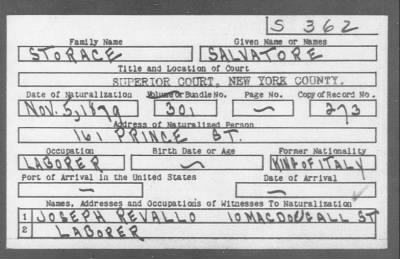 S 362
Family Name Given Name or Names
STORACE SALVATORE
Title and Location of Court
SUPERIOR COURT, NEW YORK COUNTY.
Date of Naturalization Volume Or Bundle No. Page No. Copy of Record No.
Nov. 5, 1879 301 — 273
Address of Naturalized Person
161 PRINCE ST.
Occupation Birth Date or Age Former Nationality
LABORER — KING OF ITALY
Port of Arrival in the United States Date of Arrival
— —
Names, Addresses and Occupations of Witnesses To Naturalization
1 JOSEPH REVALLO 10 MACDOUGALL ST
2 LABORER